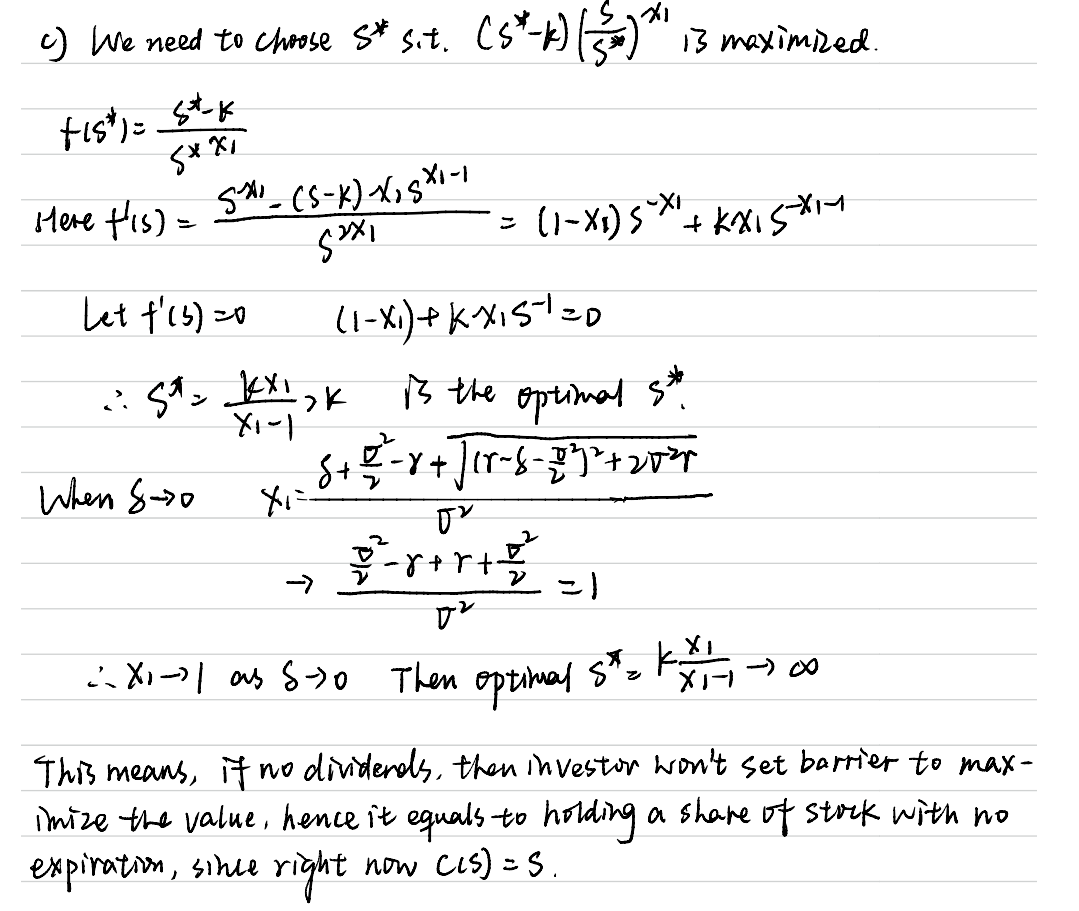 c) We need to choose S* s.t. (S*-k)(S/S*)^x₁ is maximized.
f(S*) = (S*-k)/(S*^x₁)
Here f'(s) = (S^x₁ - (S-k)x₁S^(x₁-1))/(S^(2x₁)) = (1-x₁)S^(-x₁) + kx₁S^(-x₁-1)
Let f'(s) = 0 (1-x₁) + kx₁S^(-1) = 0
∴ S* = kx₁/(x₁-1) > k is the optimal S*.
When δ→0 x₁ = (δ + σ²/2 - r + √((r-δ-σ²/2)² + 2σ²r))/σ²
→ (σ²/2 - r + r + σ²/2)/σ² = 1
∴ x₁→1 as δ→0 Then optimal S* = k x₁/(x₁-1) → ∞
This means, if no dividends, then investor won't set barrier to max-
imize the value, hence it equals to holding a share of stock with no
expiration, since right now C(S) = S.